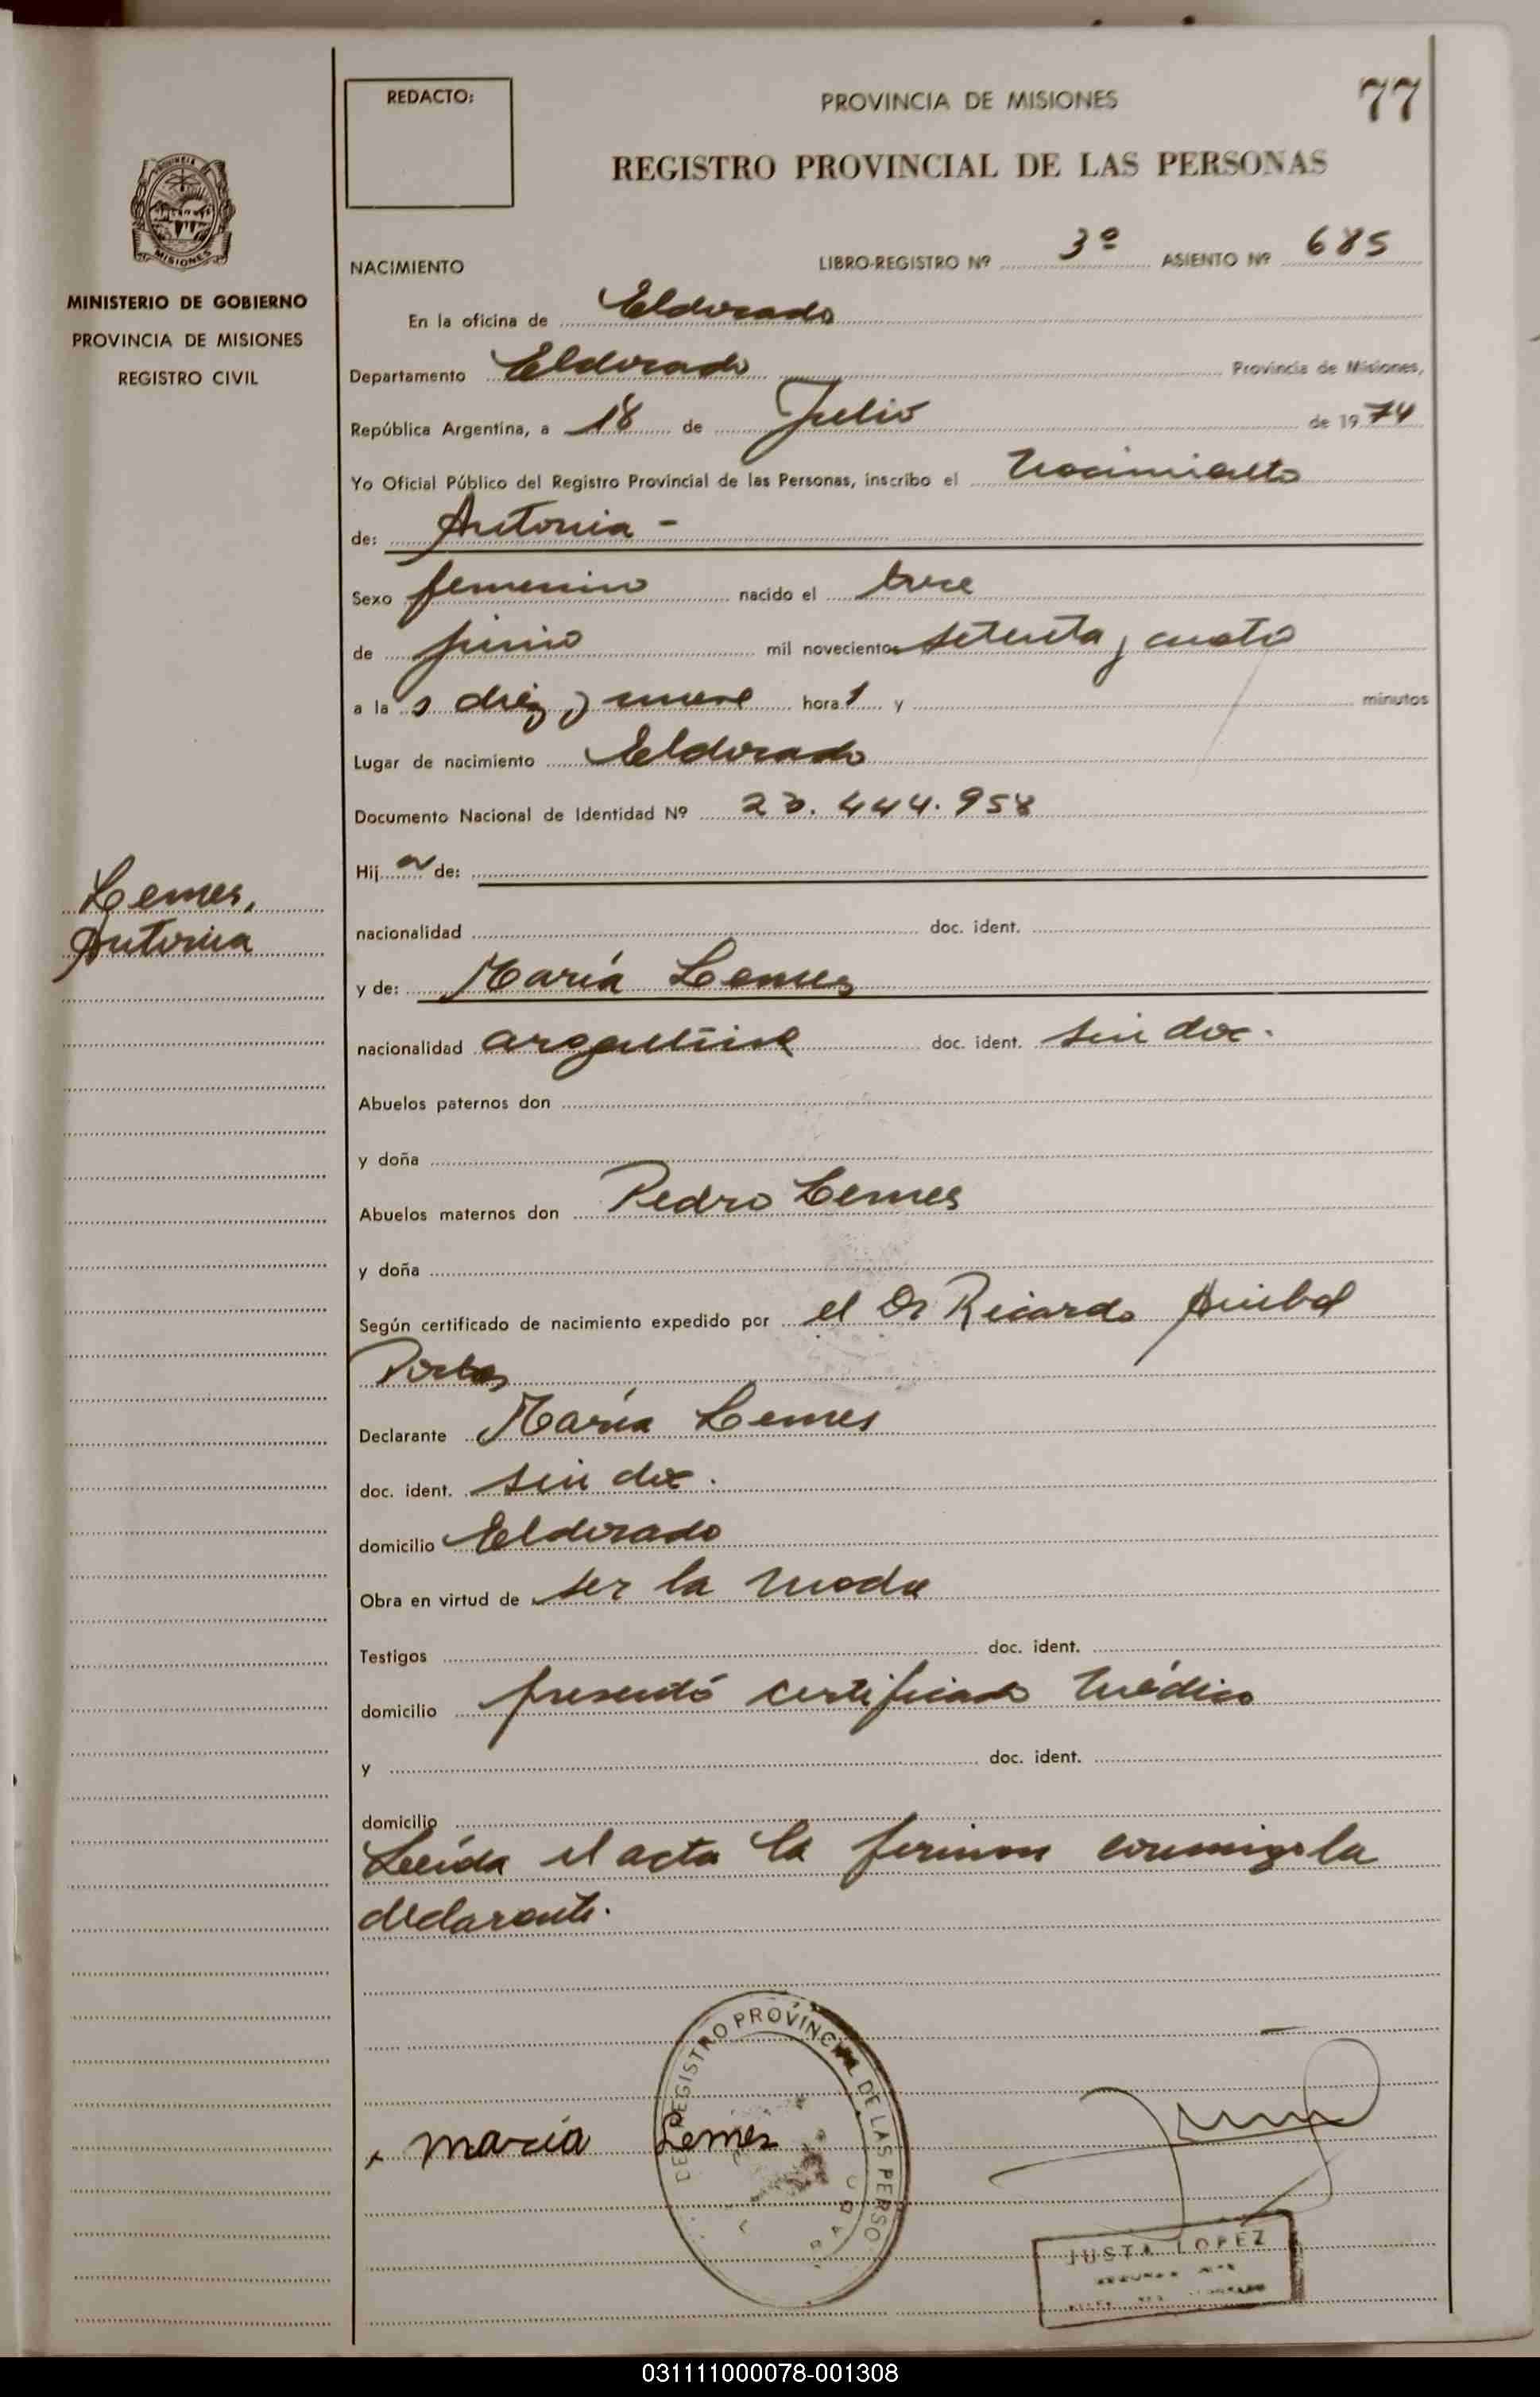 REDACTO:
PROVINCIA DE MISIONES
77
REGISTRO PROVINCIAL DE LAS PERSONAS
PROVINCIA
MISIONES
MINISTERIO DE GOBIERNO
PROVINCIA DE MISIONES
REGISTRO CIVIL
NACIMIENTO LIBRO-REGISTRO Nº 3º ASIENTO Nº 685
En la oficina de Eldorado
Departamento Eldorado Provincia de Misiones,
República Argentina, a 18 de Julio de 1974
Yo Oficial Público del Registro Provincial de las Personas, inscribo el Nacimiento
de: Antonia -
Sexo femenino nacido el
de junio mil novecientos setenta y cuatro
a la s diez y nueve hora s y minutos
Lugar de nacimiento Eldorado
Documento Nacional de Identidad Nº 23.444.958
Hij a de:
Lemes,
Antonia
nacionalidad doc. ident.
y de: María Lemes
nacionalidad argentina doc. ident. sin doc.
Abuelos paternos don
y doña
Abuelos maternos don Pedro Lemes
y doña
Según certificado de nacimiento expedido por el Dr Ricardo Anibal
Declarante María Lemes
doc. ident. sin doc.
domicilio Eldorado
Obra en virtud de ser la madre
Testigos doc. ident.
domicilio presentó certificado médico
y doc. ident.
domicilio
Leída el acta la firman conmigo la
declarante.
DEL REGISTRO PROVINCIAL DE LAS PERSO
x maria Lemes
JUSTA LOPEZ
031111000078-001308